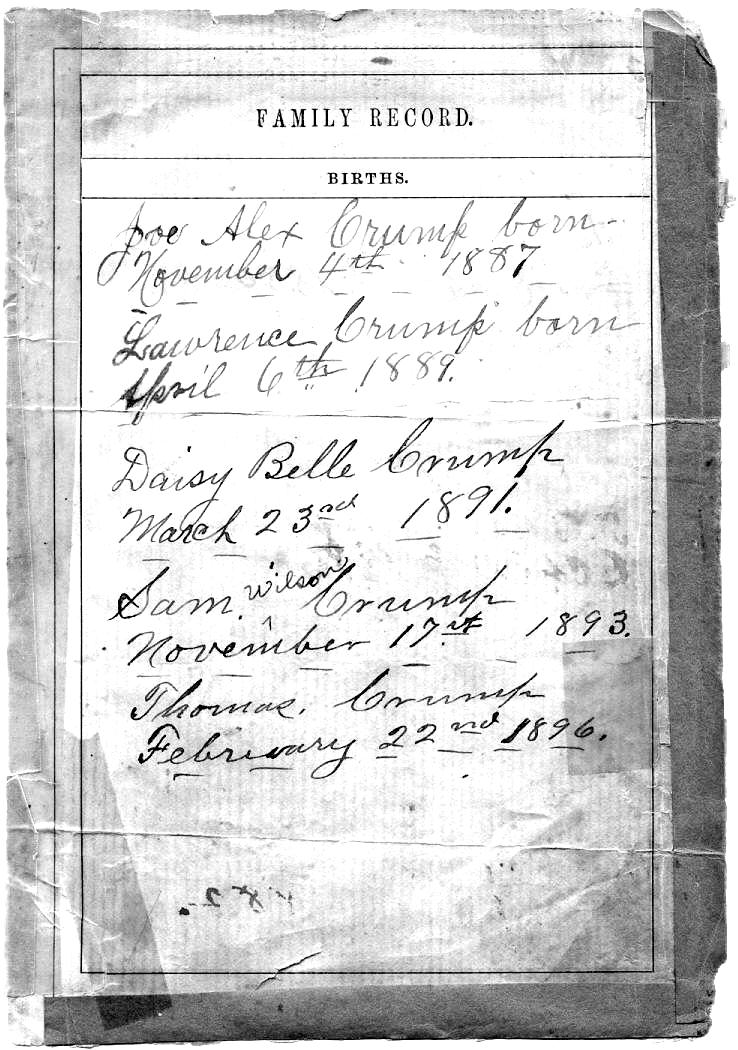 FAMILY RECORD.
BIRTHS.
Joe Alex Crump born
November 4th 1887
Lawrence Crump born
April 6th 1889.
Daisy Belle Crump
March 23rd 1891.
Sam. Wilson Crump
November 17st 1893.
Thomas. Crump
Februuary 22nd 1896.